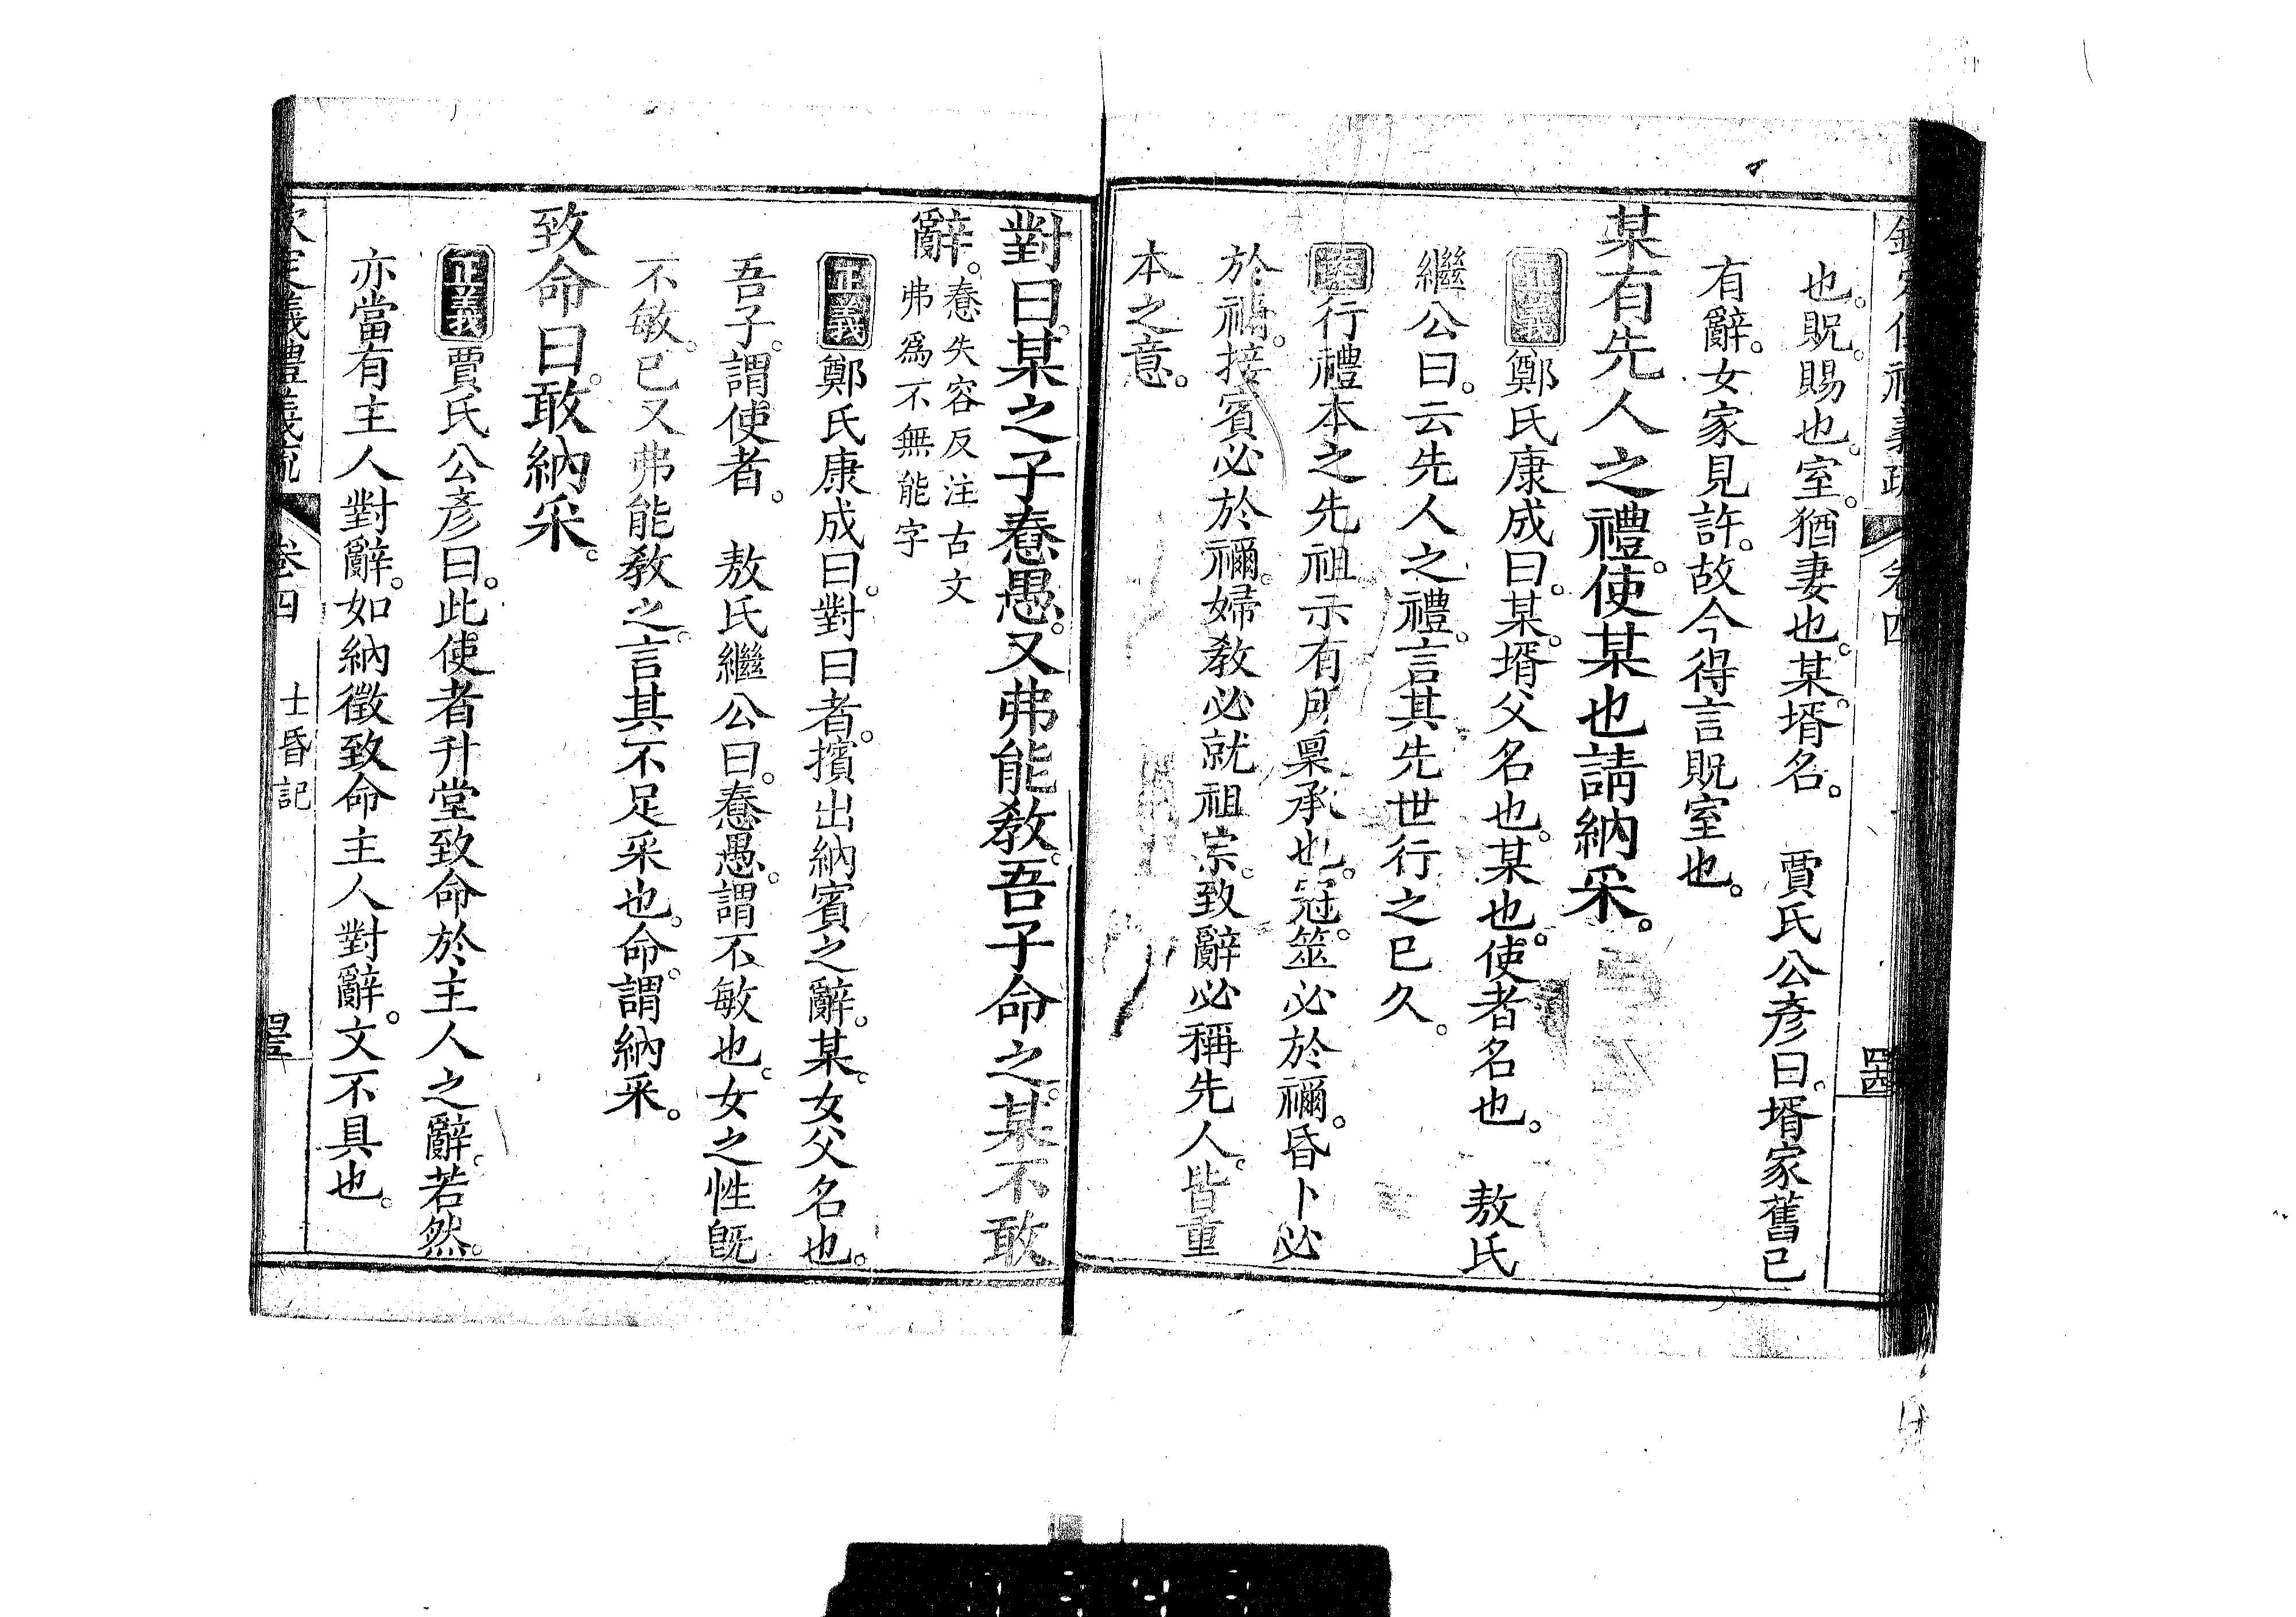 欽定儀禮義疏 卷四 四四
也。貺。賜也。室。猶妻也。某。壻名。 賈氏公彥曰。壻家舊已
有辭。女家見許。故今得言貺室也。
某有先人之禮。使某也請納采。
正義 鄭氏康成曰。某。壻父名也。某也。使者名也。 敖氏
繼公曰。云先人之禮。言其先世行之已久。
行禮本之先祖示有所稟承也。冠筮必於禰。昏卜必
於禰。接賓必於禰。婦教必就祖宗。致辭必稱先人。皆重
本之意。
對曰。某之子憃愚。又弗能教。吾子命之。某不敢
辭。憃失容反注古文
弗爲不無能字
正義 鄭氏康成曰。對曰者。擯出納賓之辭。某。女父名也。
吾子。謂使者。 敖氏繼公曰。憃愚。謂不敏也。女之性既
不敏。已又弗能教之。言其不足采也。命。謂納采。
致命曰。敢納采。
正義 賈氏公彥曰。此使者升堂致命於主人之辭。若然。
亦當有主人對辭。如納徵致命主人對辭。文不具也。
欽定義禮義疏 卷四 士昏記 四五